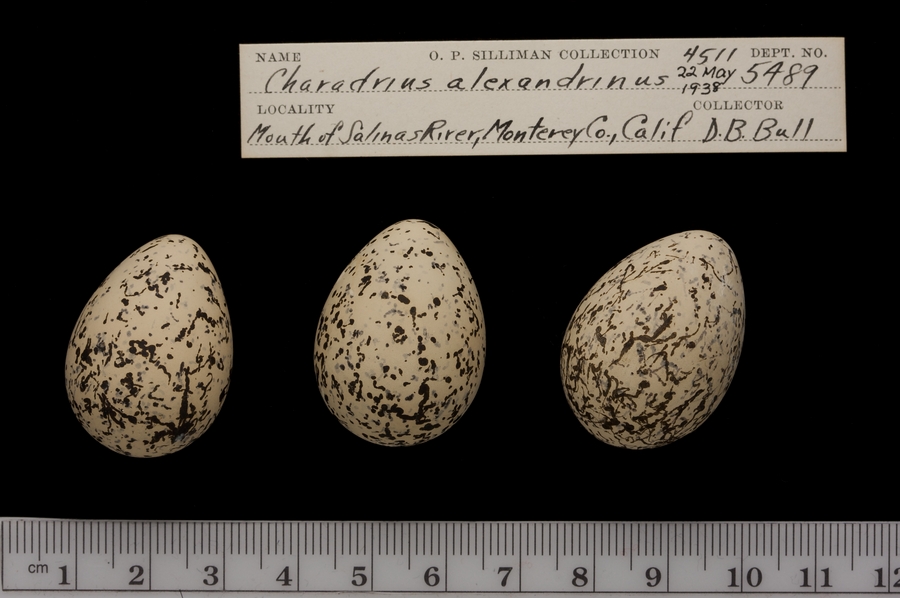 NAME O. P. SILLIMAN COLLECTION 4511 DEPT. NO.
Charadrius alexandrinus 22 May 1938 5489
LOCALITY COLLECTOR
Mouth of Salinas River, Monterey Co., Calif D.B. Bull
cm 1 2 3 4 5 6 7 8 9 10 11 12